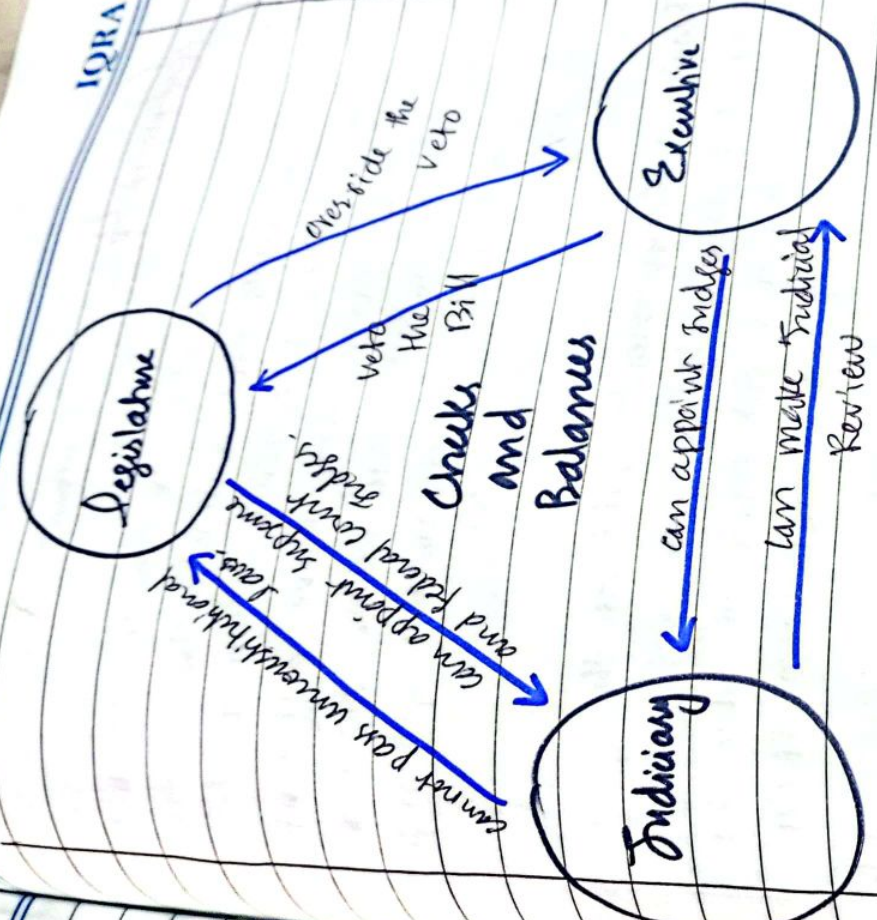 IQRA
Legislature
override the
veto
veto
the
Bill
Executive
can appoint supreme
and federal court
Judges.
cannot pass unconstitutional
laws.
Checks
and
Balances
can appoint Judges
can make Judicial
Review
Judiciary